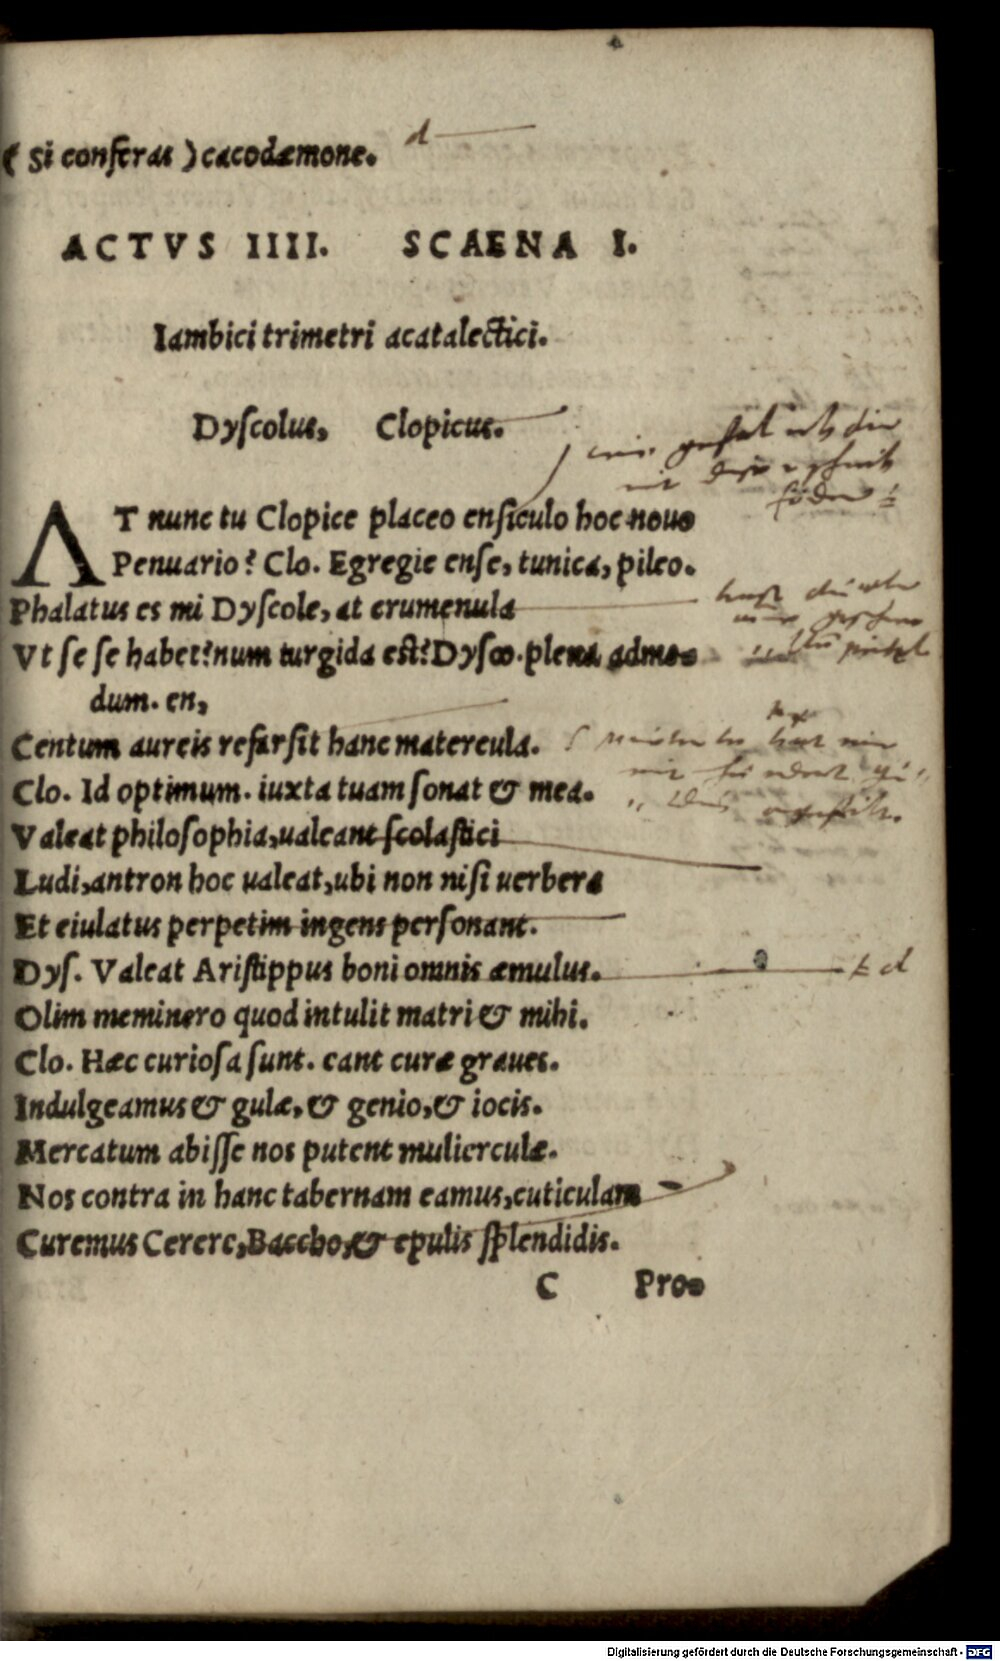 ( Si conferas ) cacodæmone. d
ACTVS IIII. SCAENA I.
Iambici trimetri acatalectici.
Dyſcolus, Clopicus.
AT nunc tu Clopice placeo enſiculo hoc nouo
Penuario? Clo. Egregie enſe, tunica, pileo.
Phalatus es mi Dyſcole, at erumenula
Vt ſe ſe habet? num turgida eſt? Dyſco. plena admo-
dum. en,
Centum aureis refarſit hanc matercula.
Clo. Id optimum. iuxta tuam ſonat & mea.
Valeat philoſophia, ualeant ſcolaſtici
Ludi, antron hoc ualeat, ubi non niſi uerbera
Et eiulatus perpetim ingens perſonant.
Dyſ. Valeat Ariſtippus boni omnis æmulus. d
Olim meminero quod intulit matri & mihi.
Clo. Hæc curioſa ſunt. cant curæ graues.
Indulgeamus & gulæ, & genio, & iocis.
Mercatum abiſſe nos putent mulierculæ.
Nos contra in hanc tabernam eamus, cuticulam
Curemus Cerere, Baccho, & epulis ſplendidis.
C Pro-
Digitalisierung gefördert durch die Deutsche Forschungsgemeinschaft - DFG